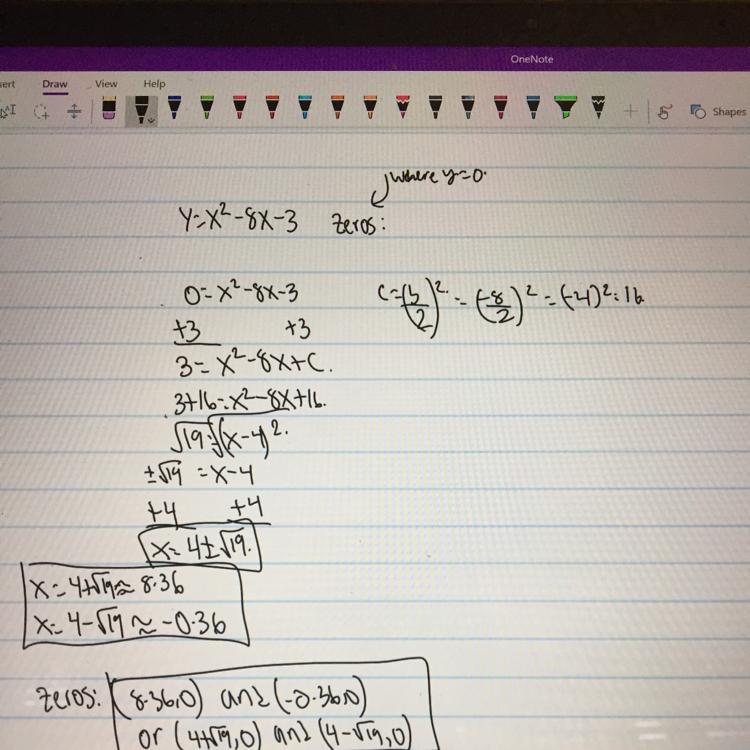 OneNote
ert Draw View Help
Shapes
where y=0.
Y=X²-8X-3 Zeros:
0=X²-8X-3
C=(b/2)²=(-8/2)²=(-4)²=16
+3 +3
3=X²-8X+C.
3+16=X²-8X+16.
√19=√(X-4)²
±√19 =X-4
+4 +4
X=4±√19.
X=4+√19≈8.36
X=4-√19≈-0.36
Zeros: (8.36,0) and (-0.36,0)
or (4+√19,0) and (4-√19,0)